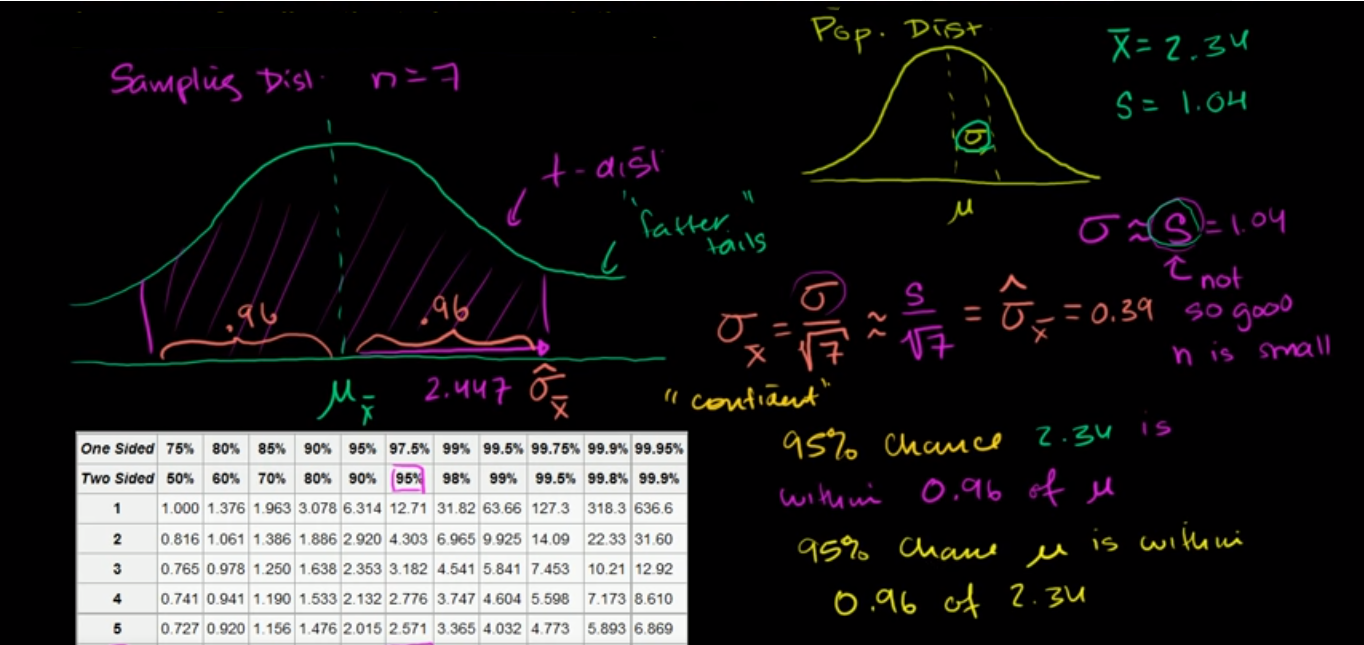 Sampling Dist. n=7
Pop. Dist
x̄ = 2.34
S = 1.04
σ
μ
t-dist
"fatter tails"
σ ≈ S = 1.04
not
so good
n is small
σx̄ = σ/√7 ≈ S/√7 = σ̂x̄ = 0.39
.96 .96
μx̄ 2.447 σ̂x̄
"confident"
95% chance 2.34 is
within 0.96 of μ
95% chance μ is within
0.96 of 2.34
One Sided 75% 80% 85% 90% 95% 97.5% 99% 99.5% 99.75% 99.9% 99.95%
Two Sided 50% 60% 70% 80% 90% 95% 98% 99% 99.5% 99.8% 99.9%
1 1.000 1.376 1.963 3.078 6.314 12.71 31.82 63.66 127.3 318.3 636.6
2 0.816 1.061 1.386 1.886 2.920 4.303 6.965 9.925 14.09 22.33 31.60
3 0.765 0.978 1.250 1.638 2.353 3.182 4.541 5.841 7.453 10.21 12.92
4 0.741 0.941 1.190 1.533 2.132 2.776 3.747 4.604 5.598 7.173 8.610
5 0.727 0.920 1.156 1.476 2.015 2.571 3.365 4.032 4.773 5.893 6.869